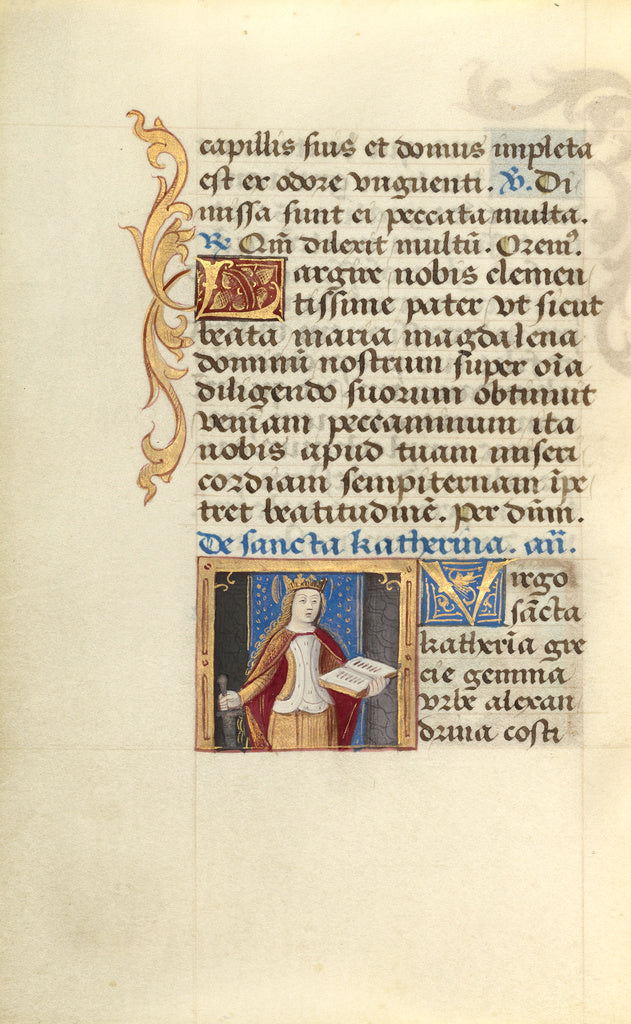 capillis suis et domus impleta
est ex odore unguenti. ℣. Di
missa sunt ei peccata multa.
℟ Qm̄ dilexit multū. Orem⁹.
Largire nobis clemen
tissime pater vt sicut
beata maria magdalena
dominū nostrum super oīa
diligendo suorum obtinuit
veniam peccaminum ita
nobis apud tuam miseri
cordiam sempiternam īpe
tret beatitudinē. Per dūm.
De sancta katherina. añ.
Virgo
sācta
katherīa gre
cie gemma
vrbe alexan
drina costi